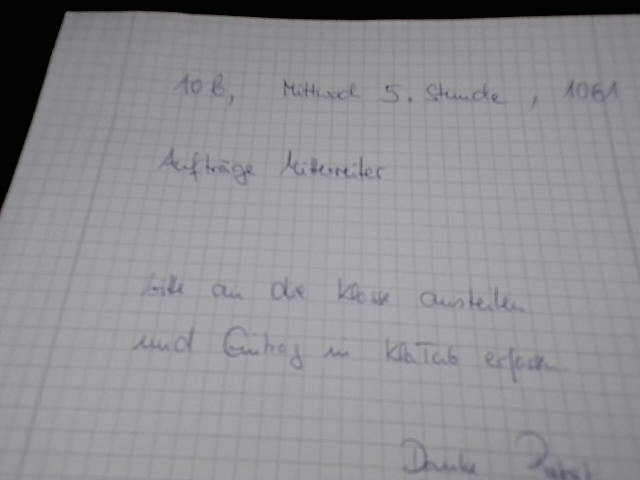 10 b, Mittwoch 5. Stunde, 1061
Aufträge Mitterreiter
bitte an die Klasse austeilen
und Eintrag in KlaTab erfassen
Danke